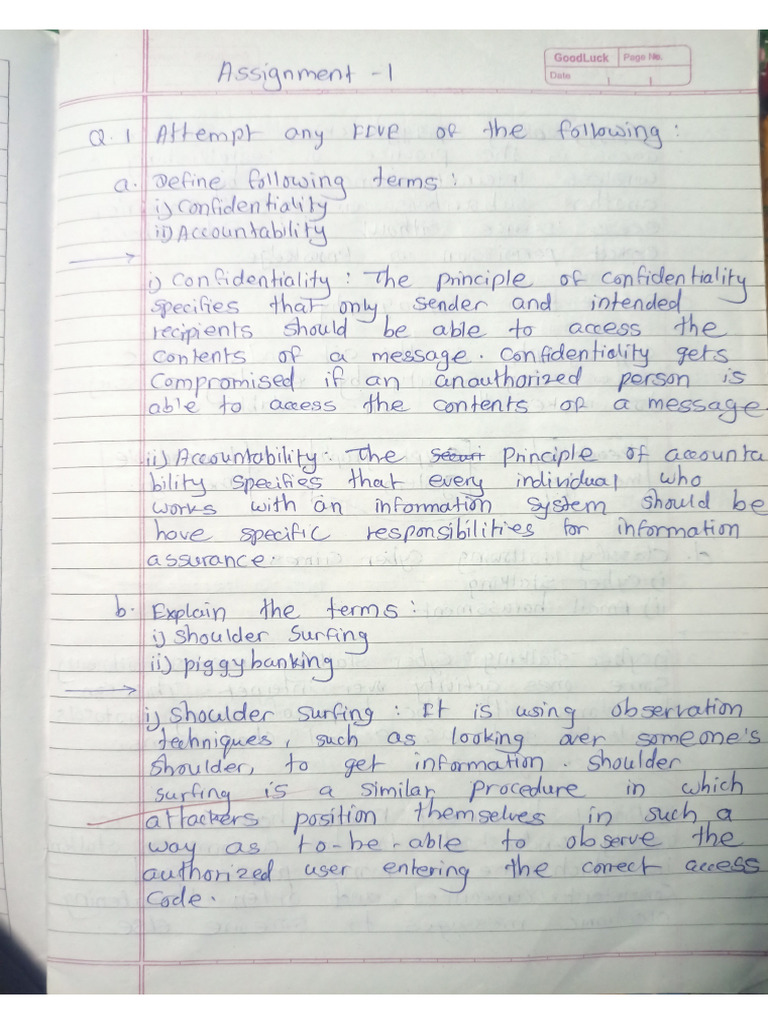 Assignment -1
GoodLuck Page No.
Date
Q.1 Attempt any FIVE of the following:
a. Define following terms:
i) Confidentiality
ii) Accountability
i) Confidentiality: The principle of confidentiality
specifies that only sender and intended
recipients should be able to access the
contents of a message. Confidentiality gets
compromised if an anauthorized person is
able to access the contents of a message
ii) Accountability: The Securi Principle of accounta
bility specifies that every individual who
works with an information system should be
have specific responsibilities for information
assurance.
b. Explain the terms:
i) Shoulder Surfing
ii) piggybanking
i) Shoulder surfing: It is using observation
techniques, such as looking over someone's
shoulder, to get information. Shoulder
surfing is a similar procedure in which
attackers position themselves in such a
way as to-be-able to observe the
authorized user entering the correct access
code.